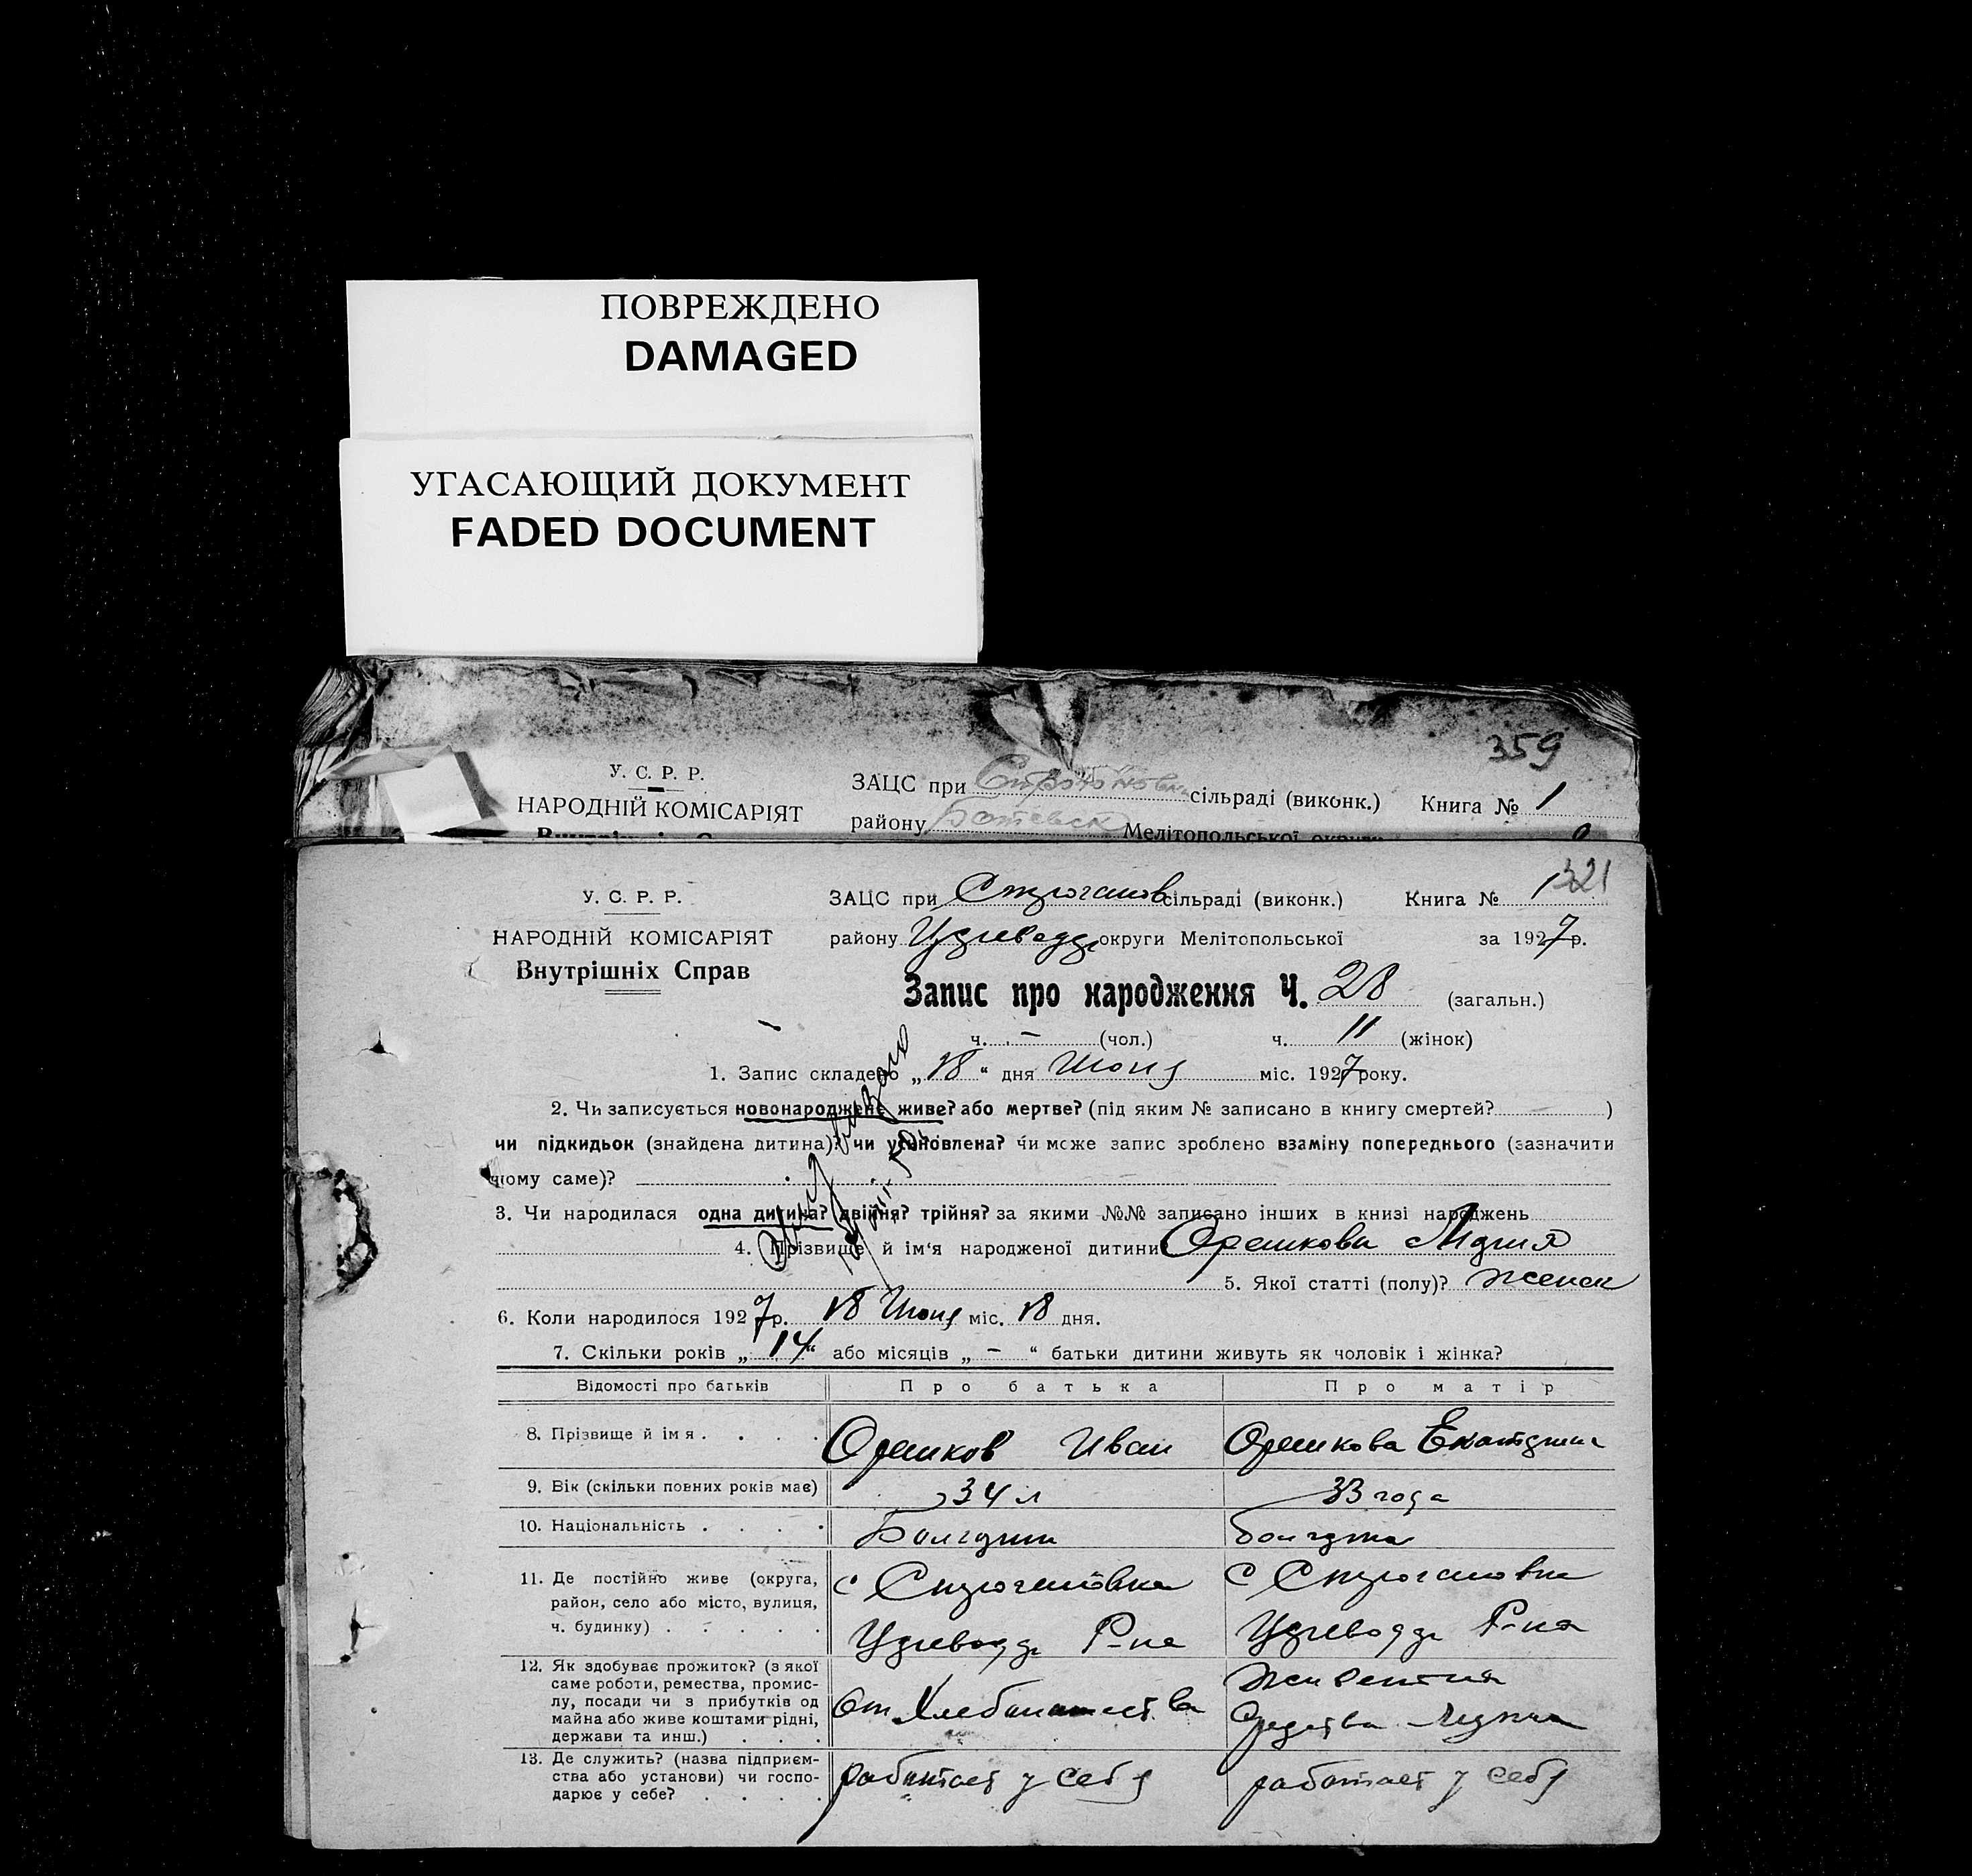 ПОВРЕЖДЕНО
DAMAGED
УГАСАЮЩИЙ ДОКУМЕНТ
FADED DOCUMENT
359
У. С. Р. Р.
НАРОДНІЙ КОМІСАРІЯТ
ЗАЦС при сільраді (виконк.) Книга № 1
району Ботевск Мелітопольської округи
321
У. С. Р. Р.
НАРОДНІЙ КОМІСАРІЯТ
Внутрішніх Справ
ЗАЦС при сільраді (виконк.) Книга № 1
району округи Мелітопольської за 1927 р.
Запис про народження Ч. 28 (загальн.)
ч. - (чол.) ч. 11 (жінок)
1. Запис складено „18“ дня Июня міс. 1927 року.
2. Чи записується новонароджене живе? або мертве? (під яким № записано в книгу смертей? )
чи підкидьок (знайдена дитина)? чи установлена? Чи може запис зроблено взаміну попереднього (зазначити
чому саме)?
3. Чи народилася одна дитина? двійня? трійня? за якими №№ записано інших в книзі народжень
4. Прізвище й ім‘я народженої дитини Орешкова Мария
5. Якої статті (полу)? женск
6. Коли народилося 1927 р. 18 Июня міс. 18 дня.
7. Скільки років „14“ або місяців „-“ батьки дитини живуть як чоловік і жінка?
Відомості про батьків Про батька Про матір
8. Прізвище й імя . . . . Орешков Иван Орешкова Екатерина
9. Вік (скільки повних років має) 34 л 33 года
10. Національність . . . . Болгарин болгарка
11. Де постійно живе (округа,
район, село або місто, вулиця,
ч. будинку) . . . . .
с
Р-на
с
Р-на
12. Як здобуває прожиток? (з якої
саме роботи, ремества, промис-
лу, посади чи з прибутків од
майна або живе коштами рідні,
держави та инш.) . . .
От Хлебопашества
средства мужа
13. Де служить? (назва підприєм-
ства або установи) чи госпо-
дарює у себе? . . . .
работает у себя
работает у себя